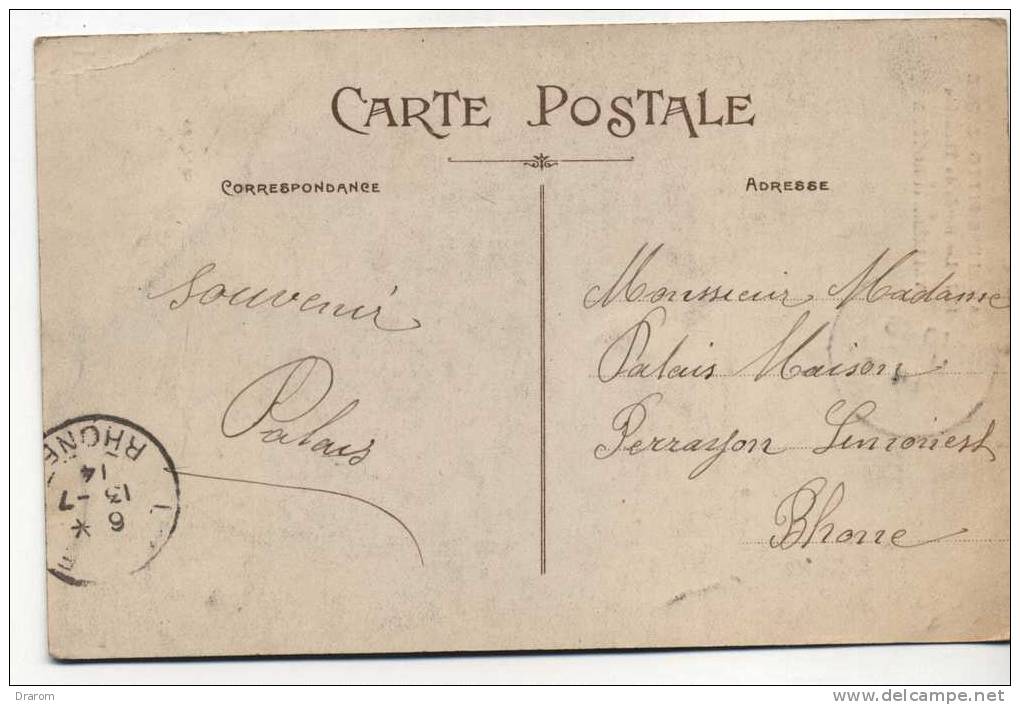 CARTE POSTALE
CORRESPONDANCE
ADRESSE
souvenir
Palais
Monssieur Madame
Palais Maison
Perrayon Limonest
Rhone
RHÔNE
6 *
13 -7
14
Drarom
www.delcampe.net